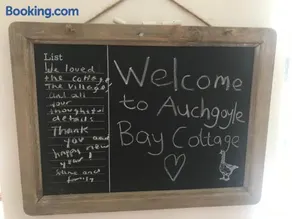 Booking.com
List
We loved
the cottage,
the village,
and all
your
thoughtful
details
Thank
you and
happy new
year!
and
family
Welcome
to Auchgoyle
Bay Cottage